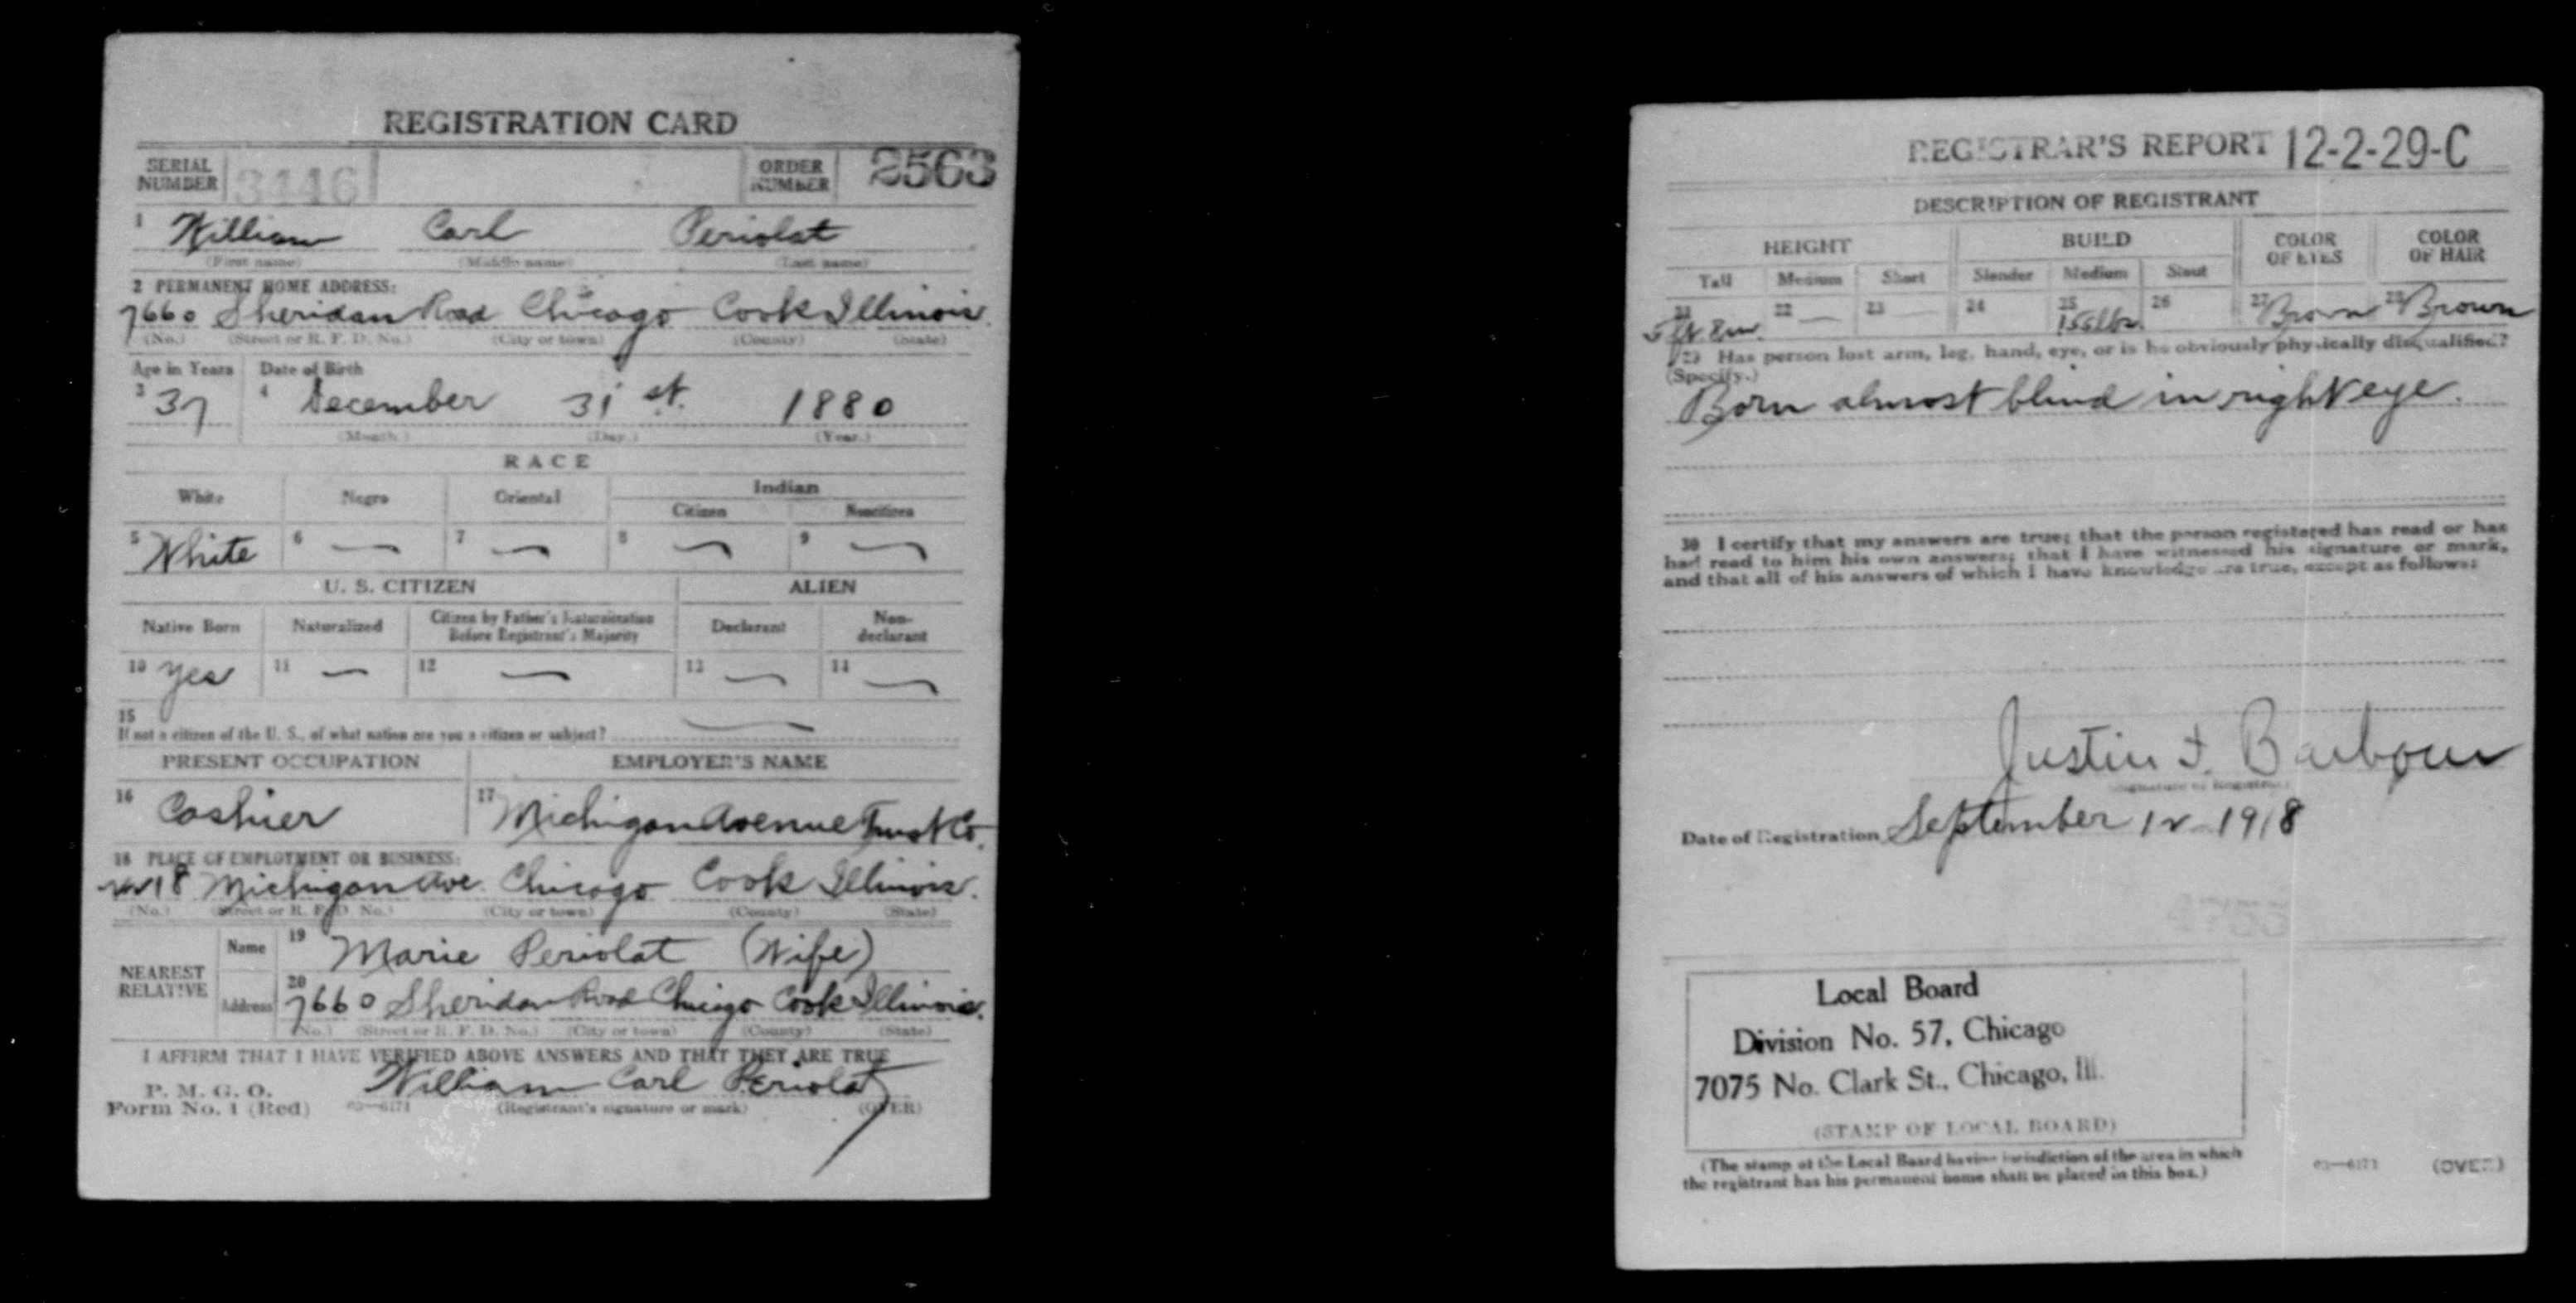 REGISTRATION CARD
SERIAL NUMBER 3446 ORDER NUMBER 2563
1 William Carl Periolat
(First name) (Middle name) (Last name)
2 PERMANENT HOME ADDRESS:
7660 Sheridan Road Chicago Cook Illinois.
(No.) (Street or R. F. D. No.) (City or town) (County) (State)
Age in Years Date of Birth
3 37 4 December 31st. 1880
(Month.) (Day.) (Year.)
RACE
White Negro Oriental Indian
Citizen Noncitizen
5 White 6 — 7 — 8 — 9 —
U. S. CITIZEN ALIEN
Native Born Naturalized Citizen by Father's Naturalization Before Registrant's Majority Declarant Non-declarant
10 Yes 11 — 12 — 13 — 14 —
15
If not a citizen of the U. S., of what nation are you a citizen or subject? —
PRESENT OCCUPATION EMPLOYER'S NAME
16 Cashier 17 Michigan Avenue Trust Co.
18 PLACE OF EMPLOYMENT OR BUSINESS:
Michigan Ave. Chicago Cook Illinois.
(No.) (Street or R. F. D. No.) (City or town) (County) (State)
NEAREST RELATIVE
Name 19 Marie Periolat (Wife)
Address 20 7660 Sheridan Road Chicago Cook Illinois.
(No.) (Street or R. F. D. No.) (City or town) (County) (State)
I AFFIRM THAT I HAVE VERIFIED ABOVE ANSWERS AND THAT THEY ARE TRUE
P. M. G. O.
Form No. 1 (Red) 03—6171 William Carl Periolat
(Registrant's signature or mark) (OVER)
REGISTRAR'S REPORT 12-2-29-C
DESCRIPTION OF REGISTRANT
HEIGHT BUILD COLOR OF EYES COLOR OF HAIR
Tall Medium Short Slender Medium Stout
21 5 ft. 8 in. 22 — 23 — 24 25 155 lbs. 26 27 Brown 28 Brown
29 Has person lost arm, leg, hand, eye, or is he obviously physically disqualified?
(Specify.)
Born almost blind in right eye.
30 I certify that my answers are true; that the person registered has read or has
had read to him his own answers; that I have witnessed his signature or mark,
and that all of his answers of which I have knowledge are true, except as follows:
Justin F. Barbour
(Signature of Registrar)
Date of Registration September 12 1918
Local Board
Division No. 57, Chicago
7075 No. Clark St., Chicago, Ill.
(STAMP OF LOCAL BOARD)
(The stamp of the Local Board having jurisdiction of the area in which
the registrant has his permanent home shall be placed in this box.)
03—6171 (OVER)